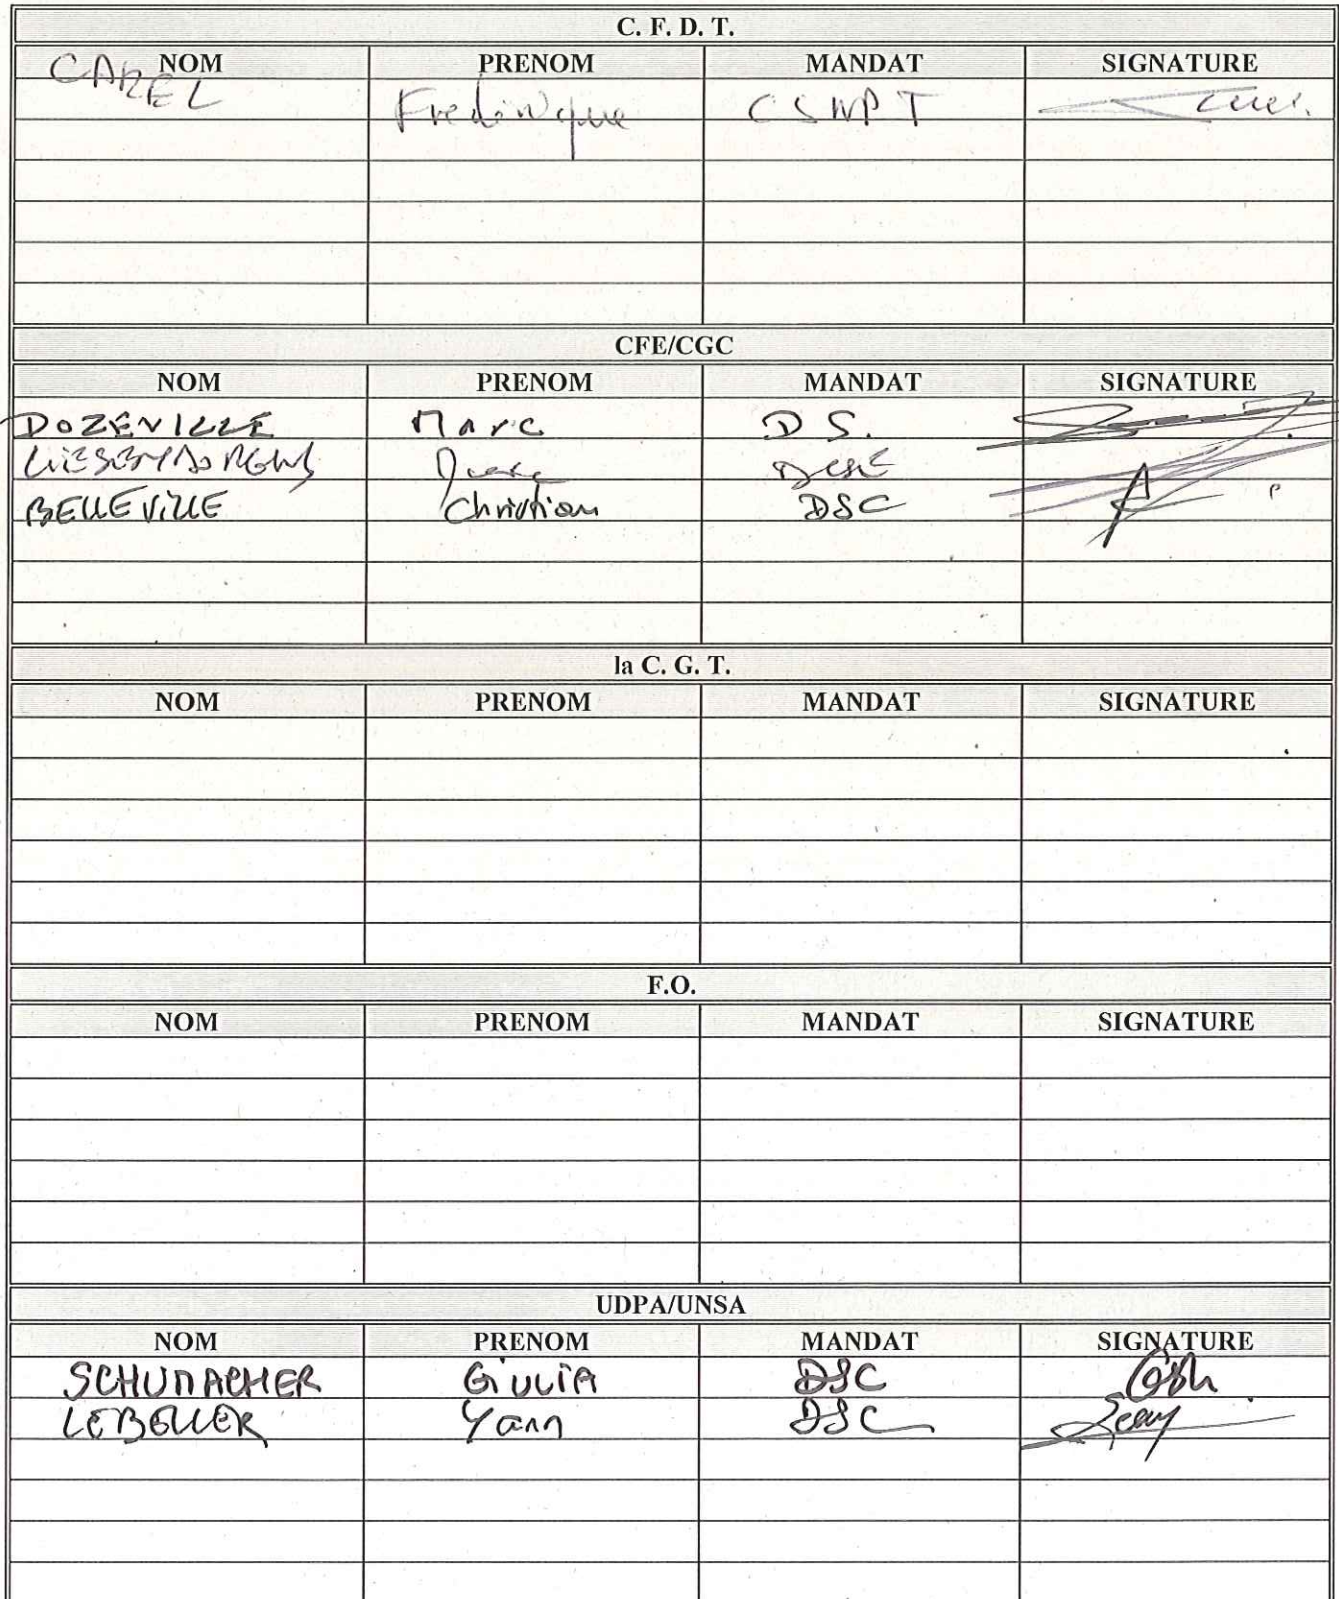 C. F. D. T.
NOM PRENOM MANDAT SIGNATURE
CAREL Frederique
CFE/CGC
NOM PRENOM MANDAT SIGNATURE
DOZEVILLE Marc D S.
BELLEVILLE Christian DSC
la C. G. T.
NOM PRENOM MANDAT SIGNATURE
F.O.
NOM PRENOM MANDAT SIGNATURE
UDPA/UNSA
NOM PRENOM MANDAT SIGNATURE
SCHUMACHER GIULIA DSC
LEBELLER Yann DSC